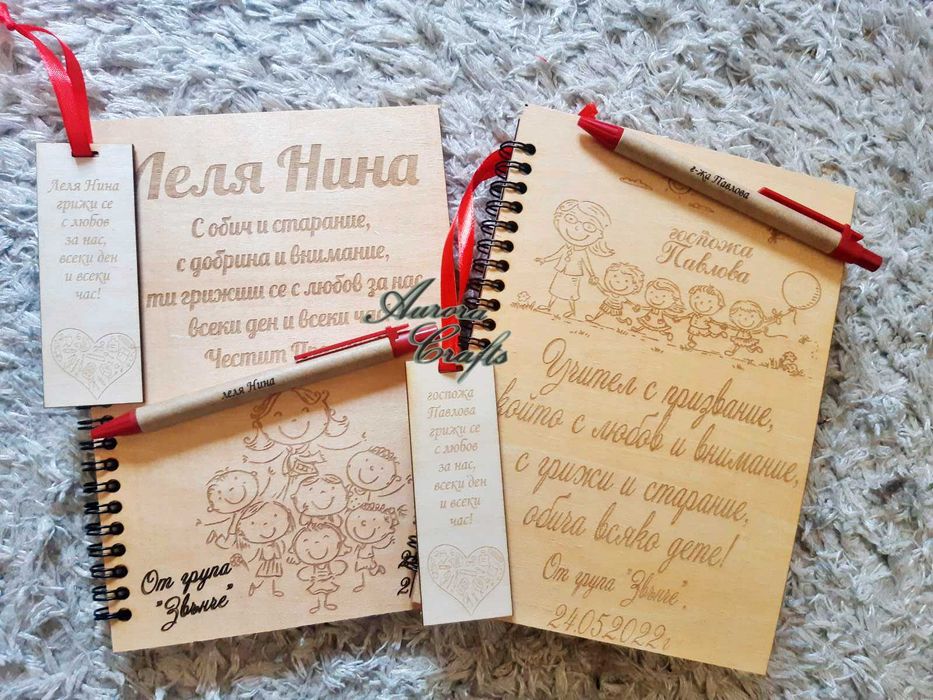 Леля Нина
грижи се
с любов
за нас,
всеки ден
и всеки
час!
Леля Нина
С обич и старание,
с добрина и внимание,
ти грижиш се с любов за нас
всеки ден и всеки
Честит
леля Нина
От група
"Звънче"
Aurora
Crafts
госпожа
Павлова
грижи се
с любов
за нас,
всеки ден
и всеки
час!
г-жа Павлова
госпожа
Павлова
Учител с призвание,
който с любов и внимание,
с грижи и старание,
обича всяко дете!
От група "Звънче",
24.05.2022г